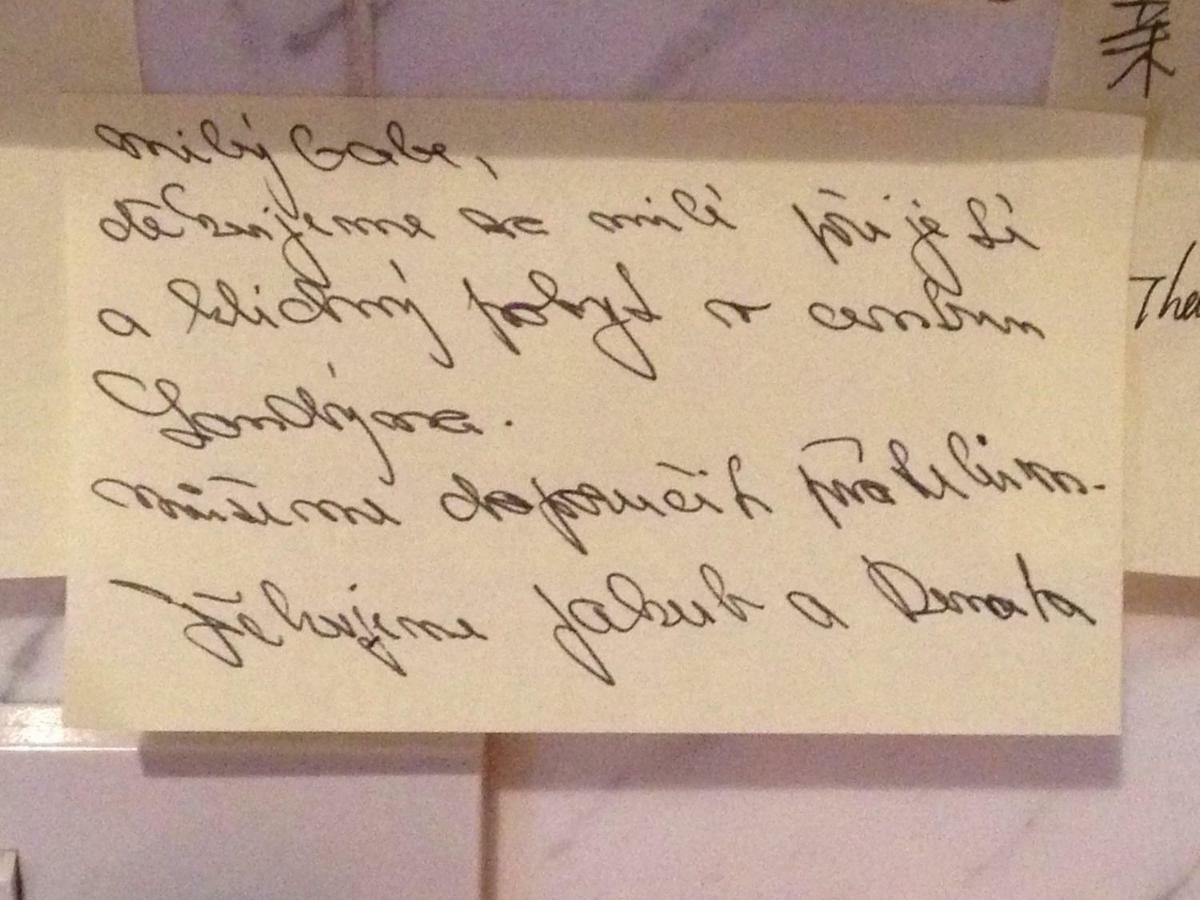 亲
milý Gabe,
děkujeme za milé přijetí
The
a klidný pobyt v centru
Londýna.
můžeme doporučit přátelům.
Děkujeme Jakub a Renata